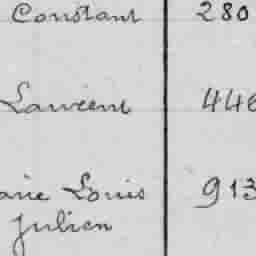 Constant 280
Laurent 446
arie Louis 913
Julien